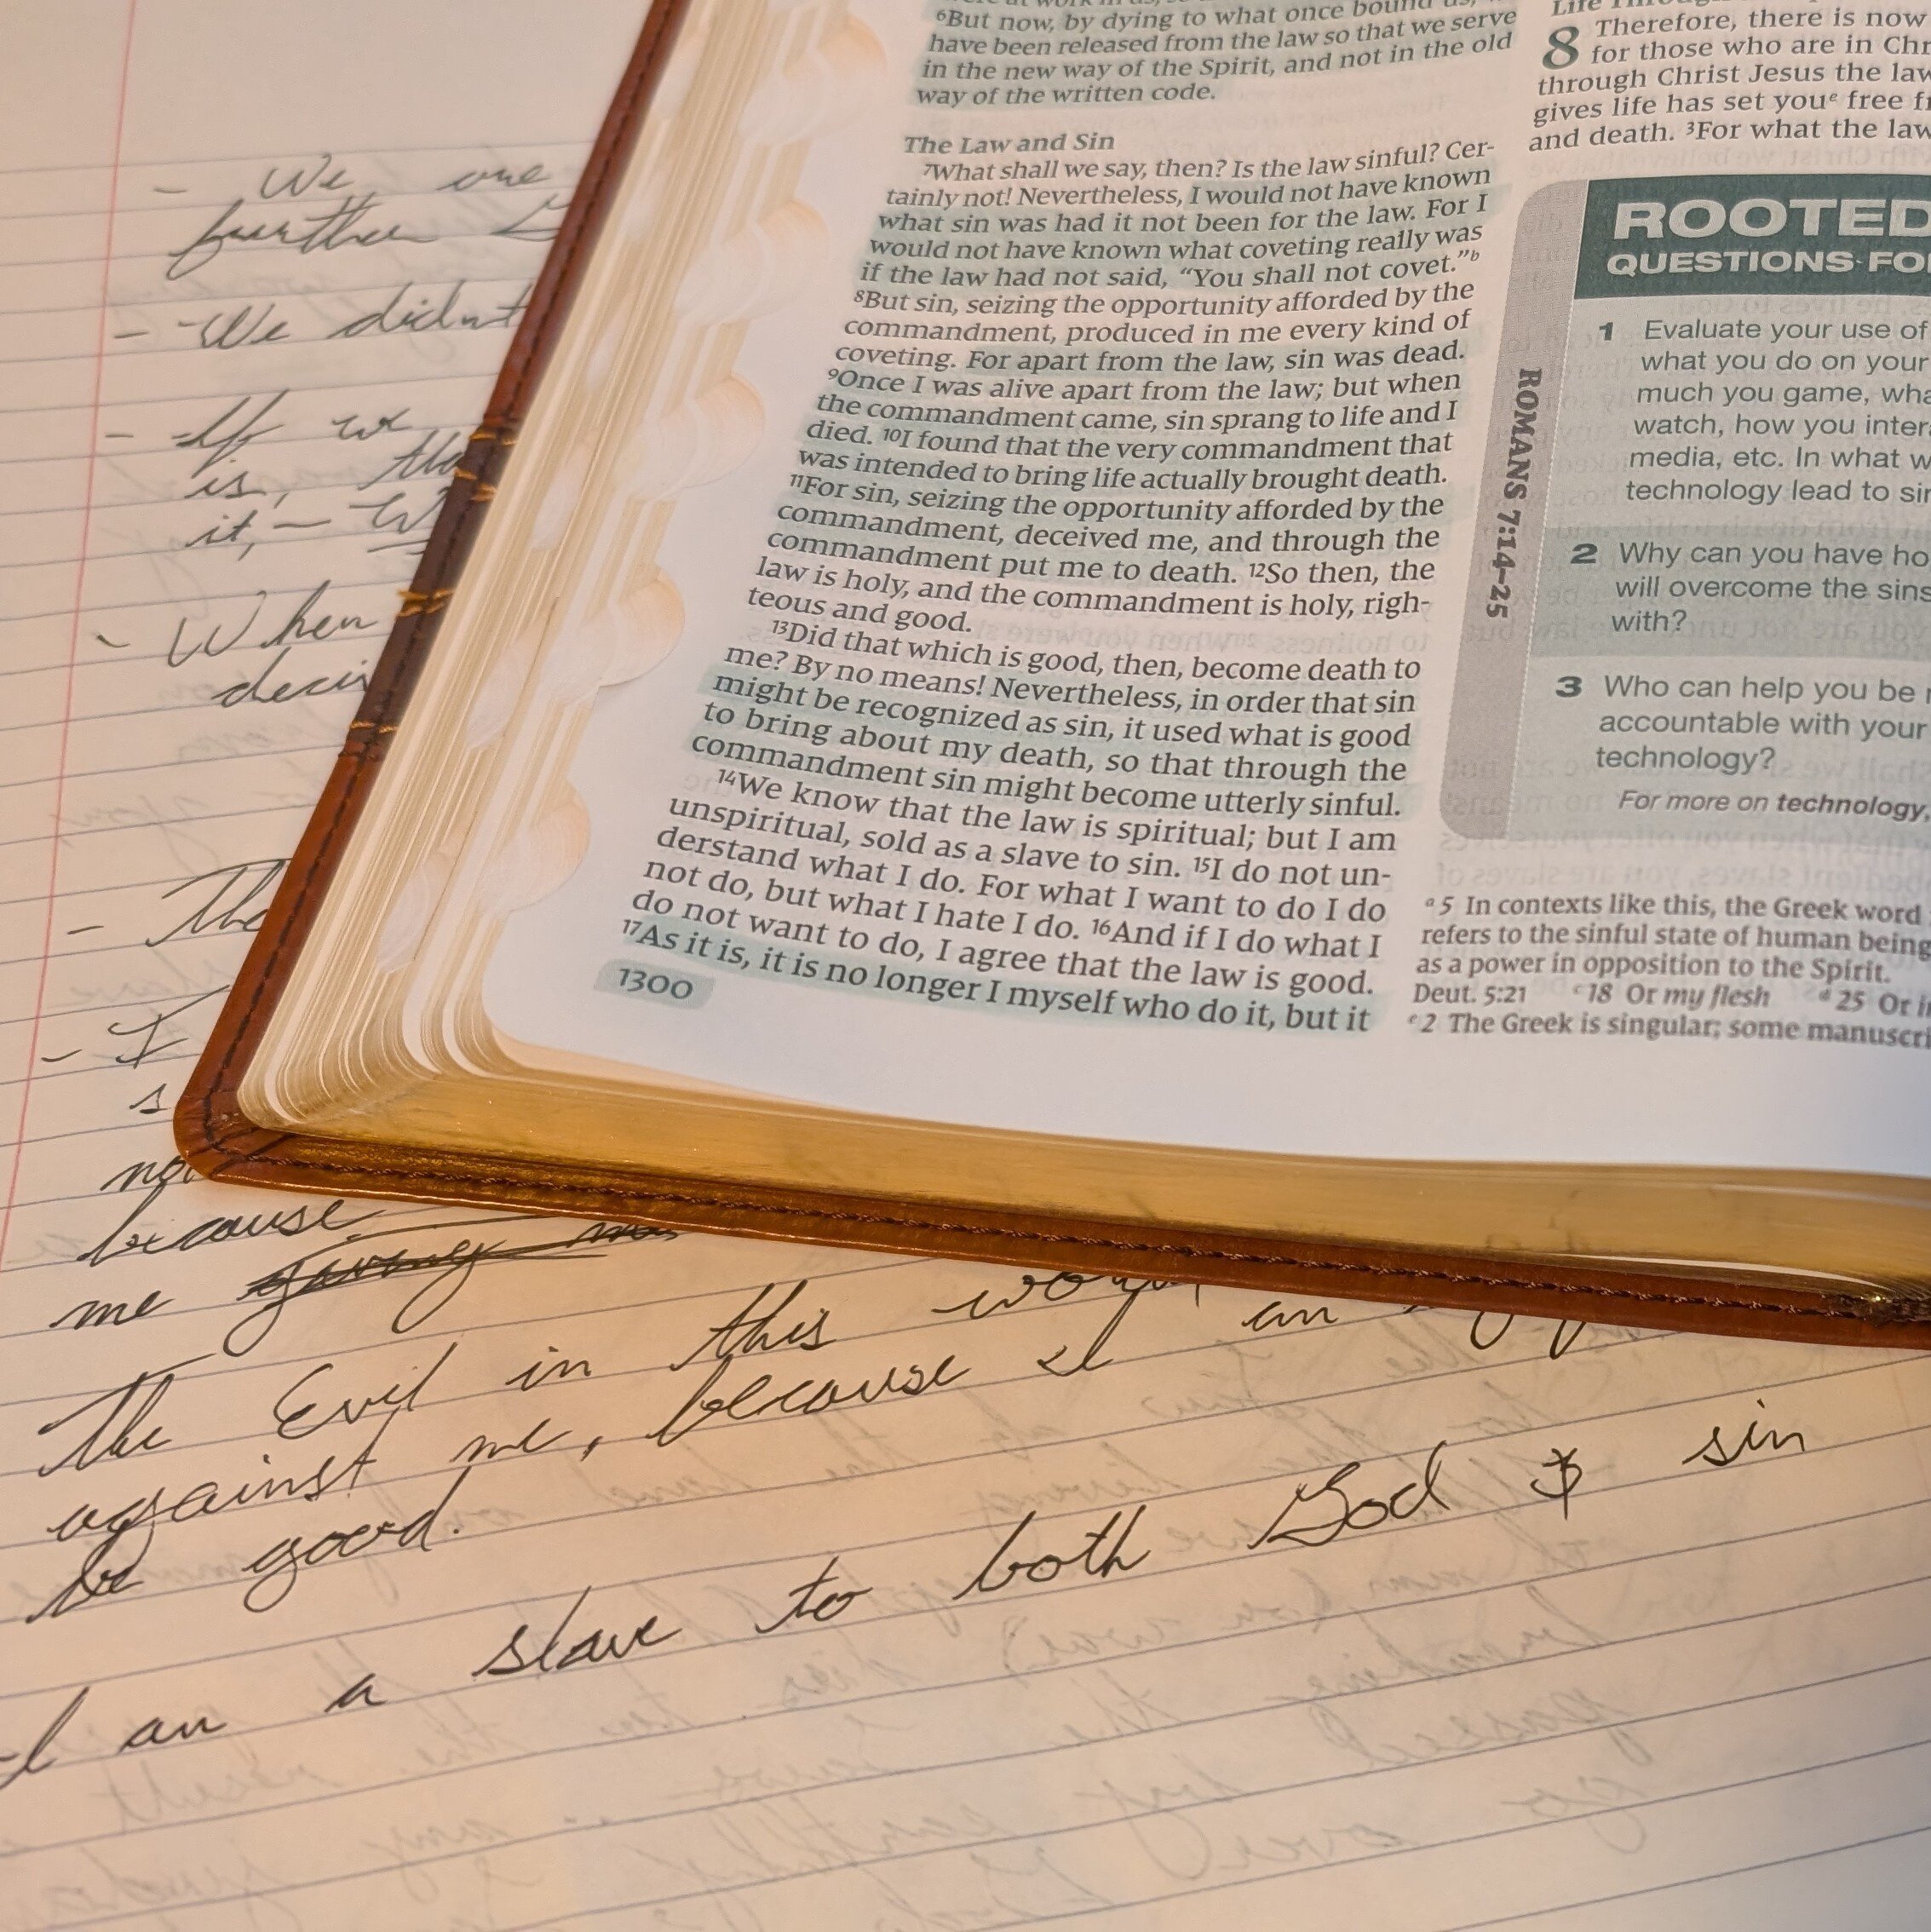 ⁶But now, by dying to what once bound us,
have been released from the law so that we serve
in the new way of the Spirit, and not in the old
way of the written code.
The Law and Sin
⁷What shall we say, then? Is the law sinful? Cer-
tainly not! Nevertheless, I would not have known
what sin was had it not been for the law. For I
would not have known what coveting really was
if the law had not said, “You shall not covet.”ᵇ
⁸But sin, seizing the opportunity afforded by the
commandment, produced in me every kind of
coveting. For apart from the law, sin was dead.
⁹Once I was alive apart from the law; but when
the commandment came, sin sprang to life and I
died. ¹⁰I found that the very commandment that
was intended to bring life actually brought death.
¹¹For sin, seizing the opportunity afforded by the
commandment, deceived me, and through the
commandment put me to death. ¹²So then, the
law is holy, and the commandment is holy, righ-
teous and good.
¹³Did that which is good, then, become death to
me? By no means! Nevertheless, in order that sin
might be recognized as sin, it used what is good
to bring about my death, so that through the
commandment sin might become utterly sinful.
¹⁴We know that the law is spiritual; but I am
unspiritual, sold as a slave to sin. ¹⁵I do not un-
derstand what I do. For what I want to do I do
not do, but what I hate I do. ¹⁶And if I do what I
do not want to do, I agree that the law is good.
¹⁷As it is, it is no longer I myself who do it, but it
1300
8 Therefore, there is now
for those who are in Chr
through Christ Jesus the law
gives life has set youᵉ free
and death. ³For what the law
ROOTED
QUESTIONS FO
ROMANS 7:14–25
1 Evaluate your use of
what you do on your
much you game, wha
watch, how you inter
media, etc. In what w
technology lead to sin
2 Why can you have ho
will overcome the sins
with?
3 Who can help you be
accountable with your
technology?
For more on technology,
ᵃ5 In contexts like this, the Greek word
refers to the sinful state of human being
as a power in opposition to the Spirit.
Deut. 5:21 ᶜ18 Or my flesh ᵈ25 Or
ᵉ2 The Greek is singular; some manuscri
- We are
further
- -We didnt
- If we
is,
it, -
- When
deci
- The
- I
s
no
because
me
The Evil in this
against me, because I an
be good.
-I an a slave to both God & sin